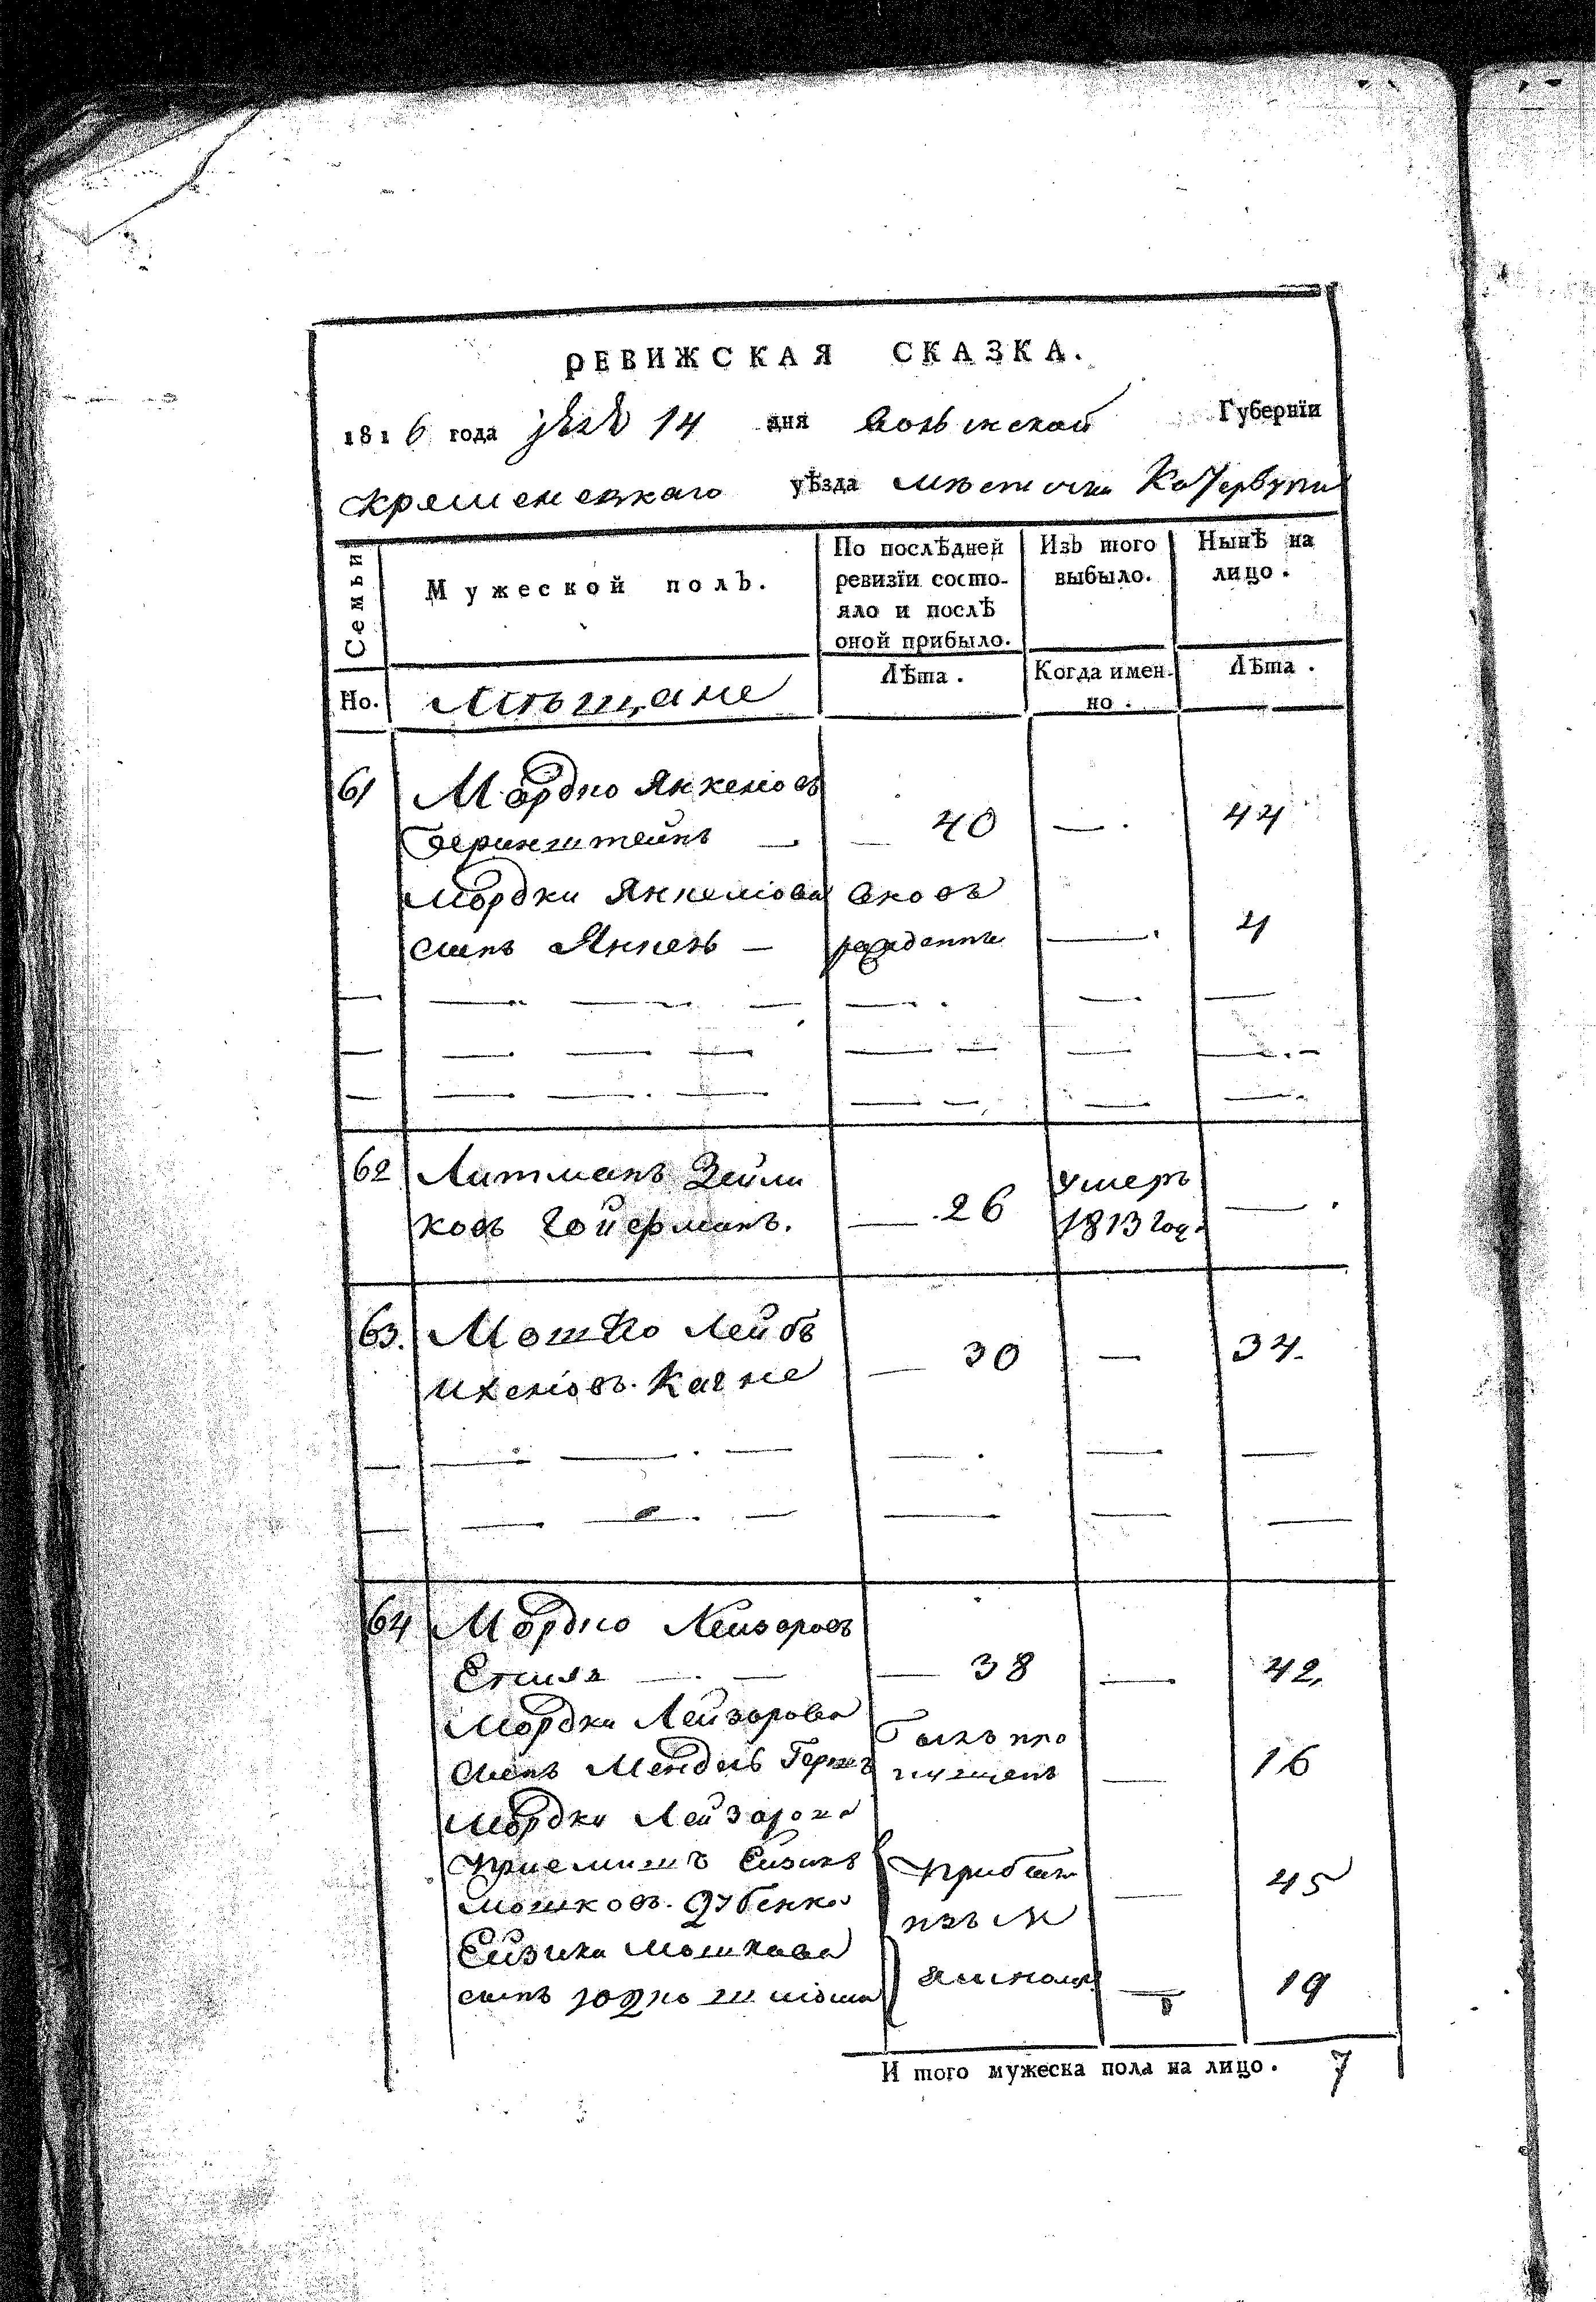 РЕВИЖСКАЯ СКАЗКА.
1816 года 14 дня Волынской Губернїи
Кременецкаго уѣзда мѣстечка
Семьи
Мужеской полъ.
По послѣдней ревизїи состояло и послѣ оной прибыло.
Изъ того выбыло.
Нынѣ на лицо.
Но. Мѣщане
Лѣта.
Когда именно.
Лѣта.
61 Мордко Янкеліовъ
Беринштейнъ — — 40 — 44
Мордки Янкеліова вновь
сынъ Янкель — рожденъ — 4
62 Литманъ Зейли
ковъ Гойферманъ. — 26 умеръ 1813 год. —
63. Мошко Лейб
ихеліовъ. Кагне — 30 — 34.
64 Мордко Лейзоровъ
— — 38 — 42.
Мордки Лейзорова былъ про
сынъ Мендель Гершъ пущенъ — 16
Мордки Лейзорова
приемишъ Ейзикъ
мошковъ. Дубенко прибылъ — 45
Ейзика мошкова изъ м
сынъ Юдко — 19
И того мужеска пола на лицо. 7